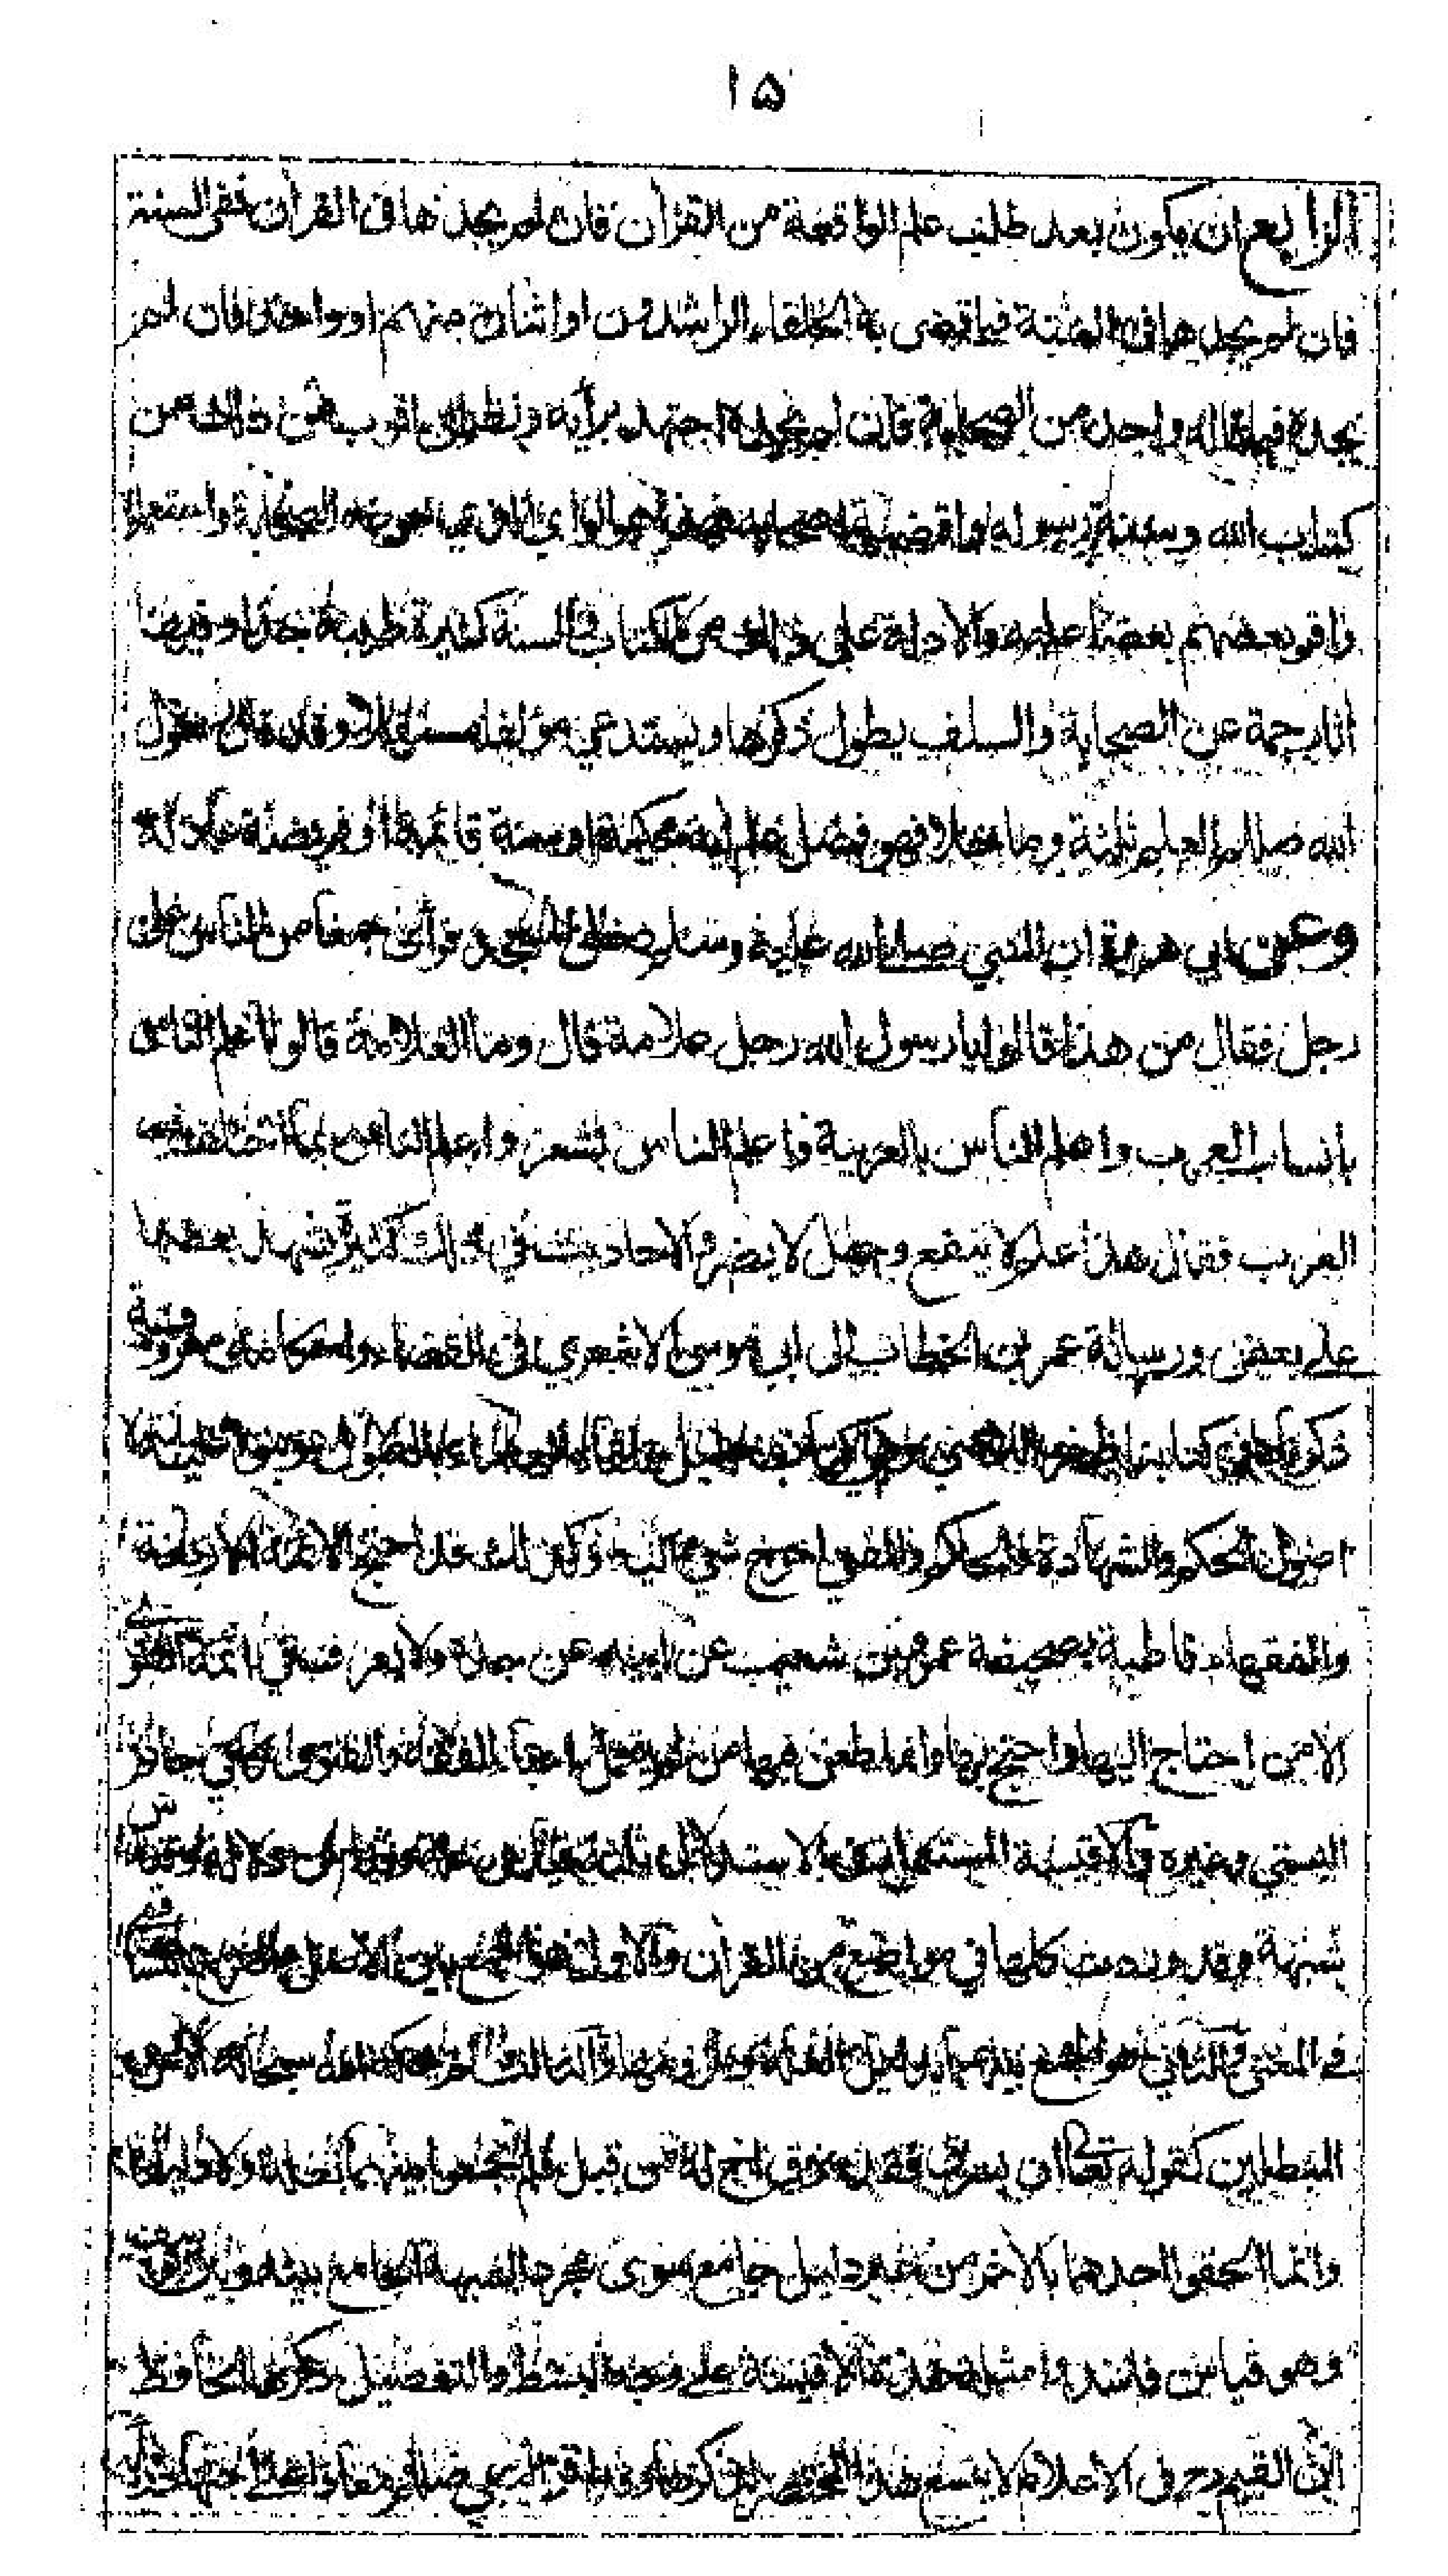 ١٥
الرابع ان يكون بعد طلب علم الواقعة من القرآن فان لم يجدها في القرآن ففي السنة
فان لم يجدها في السنة فبما قضى به الخلفاء الراشدون او اثنان منهم او واحد فان لم
يجده فبما قاله واحد من الصحابة فان لم يجده اجتهد برأيه ونظر الى اقرب ذلك من
كتاب الله وسنة رسوله واقضية اصحابه فهذا هو الرأي الذي الصحابة واستعملوه
واقر بعضهم بعضا عليه والادلة على ذلك من الكتاب والسنة كثيرة طيبة جدا وفيها
آثار جمة عن الصحابة والسلف يطول ذكرها ويستدعي مؤلفا مستقلا وقد قال رسول
الله صللم العلم ثلثة وما خلا فهو فضل علم آية محكمة او سنة قائمة او فريضة عادلة
وعن ابي هريرة ان النبي صلى الله عليه وسلم دخل المسجد فرأى جمعا من الناس على
رجل فقال من هذا قالوا يا رسول الله رجل علامة قال وما العلامة قالوا اعلم الناس
بانساب العرب واعلم الناس بالعربية واعلم الناس بشعر واعلم الناس بما اختلف فيه
العرب فقال هذا علم لا ينفع وجهل لا يضر والاحاديث في ذلك كثيرة يشهد بعضها
على بعض ورسالة عمر بن الخطاب الى ابي موسى الاشعري في القضاء واحكامه معروفة
ذكرناها في كتابنا ظفر اللاضي وهي كتاب جليل تلقاه العلماء بالقبول وبنوا عليه
اصول الحكم والشهادة والحاكم والمفتي احوج شيء اليه وكذلك قد احتج الائمة الاربعة
والفقهاء قاطبة بصحيفة عمرو بن شعيب عن ابيه عن جده ولا يعرف في ائمة الفتوى
الا من احتاج اليها واحتج بها وانما طعن فيها من لم يتحمل اعباء الفقه والفتوى كابي حاتم
البستي وغيره والاقيسة المستعملة في الاستدلال ثلاثة قياس علة وقياس دلالة وقياس
شبه وقد وردت كلها في مواضع من القرآن فالاول هو الجمع بين الاصل والفرع
في المعنى والثاني هو الجمع بينهما بدليل العلة وملزومها والثالث لم يحكه الله سبحانه الا عن
المبطلين كقوله تعالى ان يسرق فقد سرق اخ له من قبل فلم يجمعوا بينهما بعلة ولا دليلها
وانما الحقوا احدهما بالآخر من غير دليل جامع سوى مجرد الشبه الجامع بينه وبين يوسف
وهو قياس فاسد وامثلة هذه الاقيسة على وجه البسط والتفصيل ذكرها الحافظ
ابن القيم رح في الاعلام لا يتسع هذا المختصر لذكرها وقد اقر النبي صللم معاذا على اجتهاد رأيه